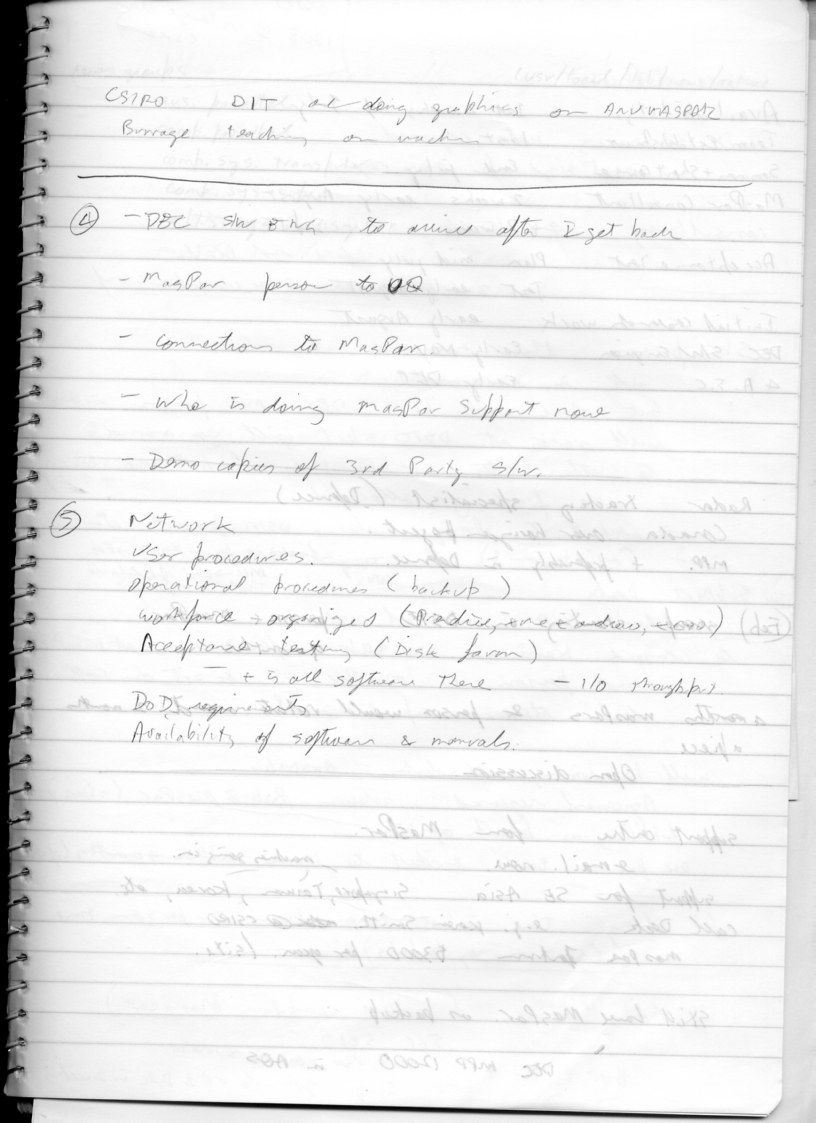 CSIRO DIT are doing graphics on ANU MASPAR
Burrage teaching on
④ - DEC S/W ENG to arrive after I get back
- MasPar person to UQ
- connections to MasPar
- Who is doing MasPar Support now
- Demo copies of 3rd Party S/W.
⑤ Network
User procedures.
operational procedures (backup)
workforce organized
Acceptance testing (Disk farm)
+ is all software there - I/O throughput.
DoD requirements
Availability of software & manuals.